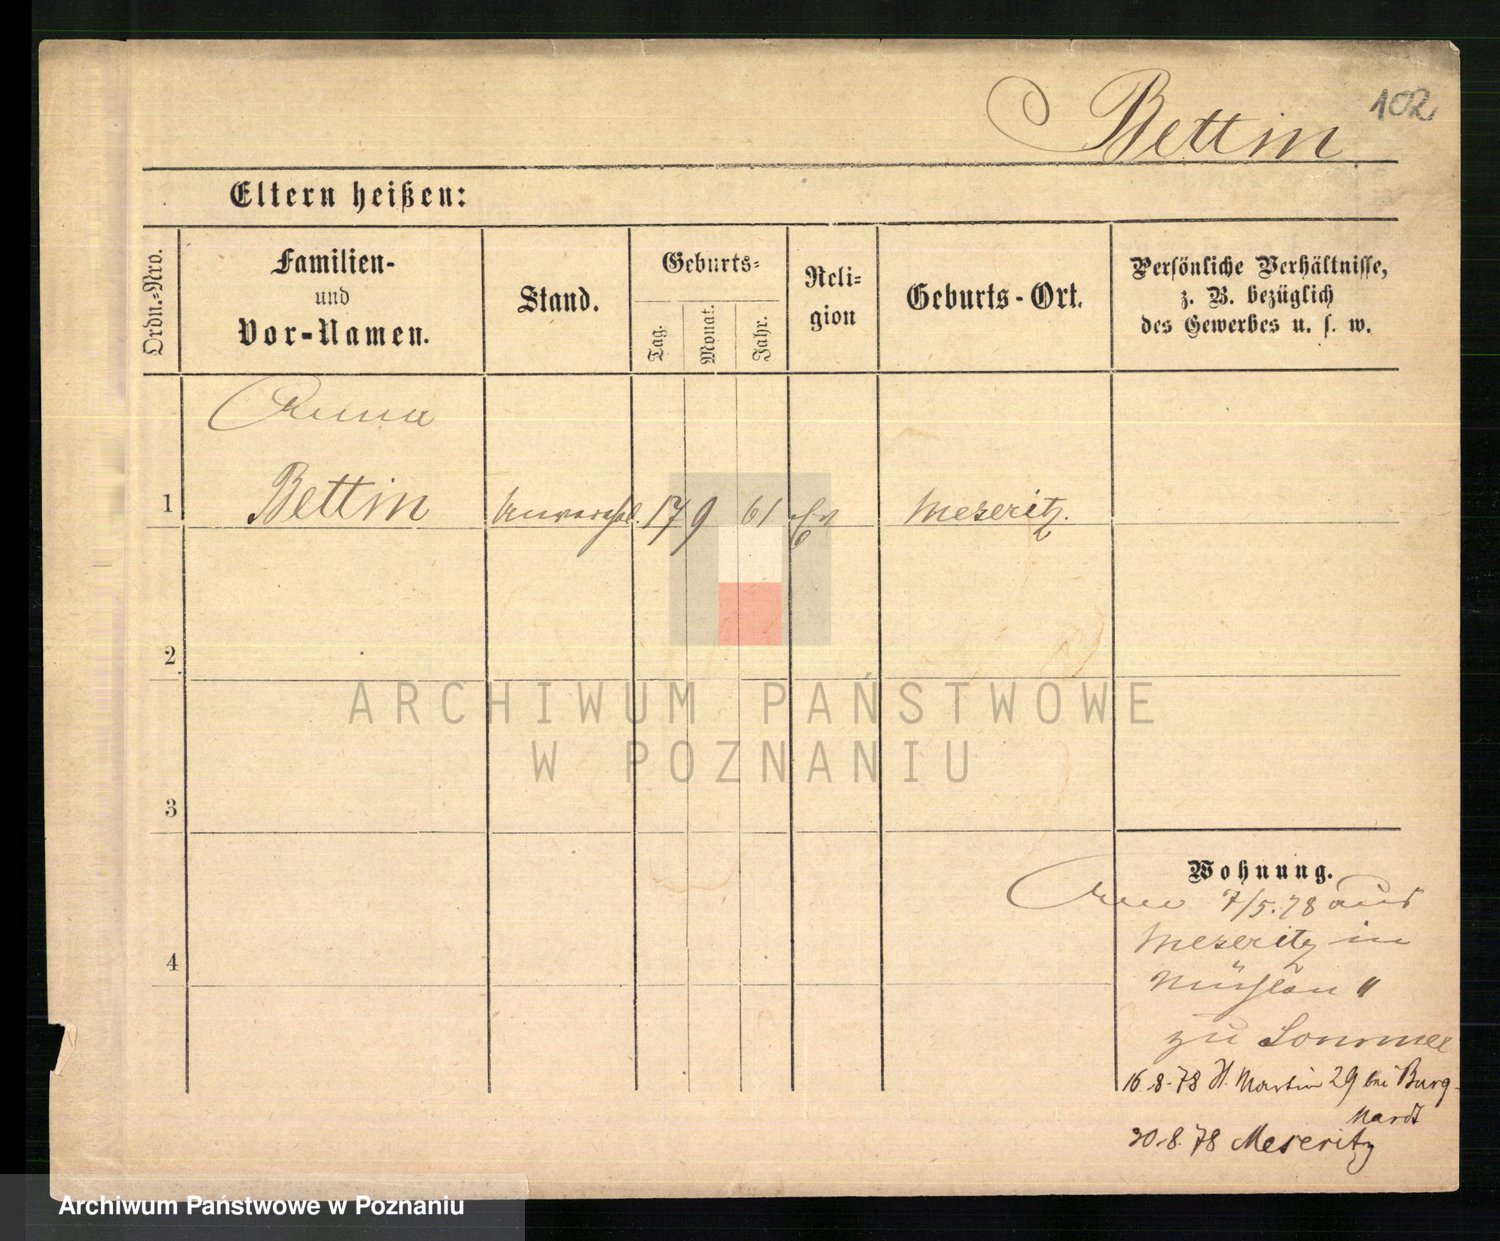 102
Bettin
Eltern heißen:
Ordn.-Nro.
Familien-
und
Vor-Namen.
Stand.
Geburts-
Tag.
Monat.
Jahr.
Reli-
gion
Geburts-Ort.
Persönliche Verhältnisse,
z. B. bezüglich
des Gewerbes u. s. w.
Anna
1 Bettin 17 9 61 Meseritz.
2
3
4
Wohnung.
7/5.78 aus
Meseritz in
"
zu Sommer
16.8.78 St. Martin 29 bei Burg-
hardt
30.8.78 Meseritz
ARCHIWUM PAŃSTWOWE
W POZNANIU
Archiwum Państwowe w Poznaniu